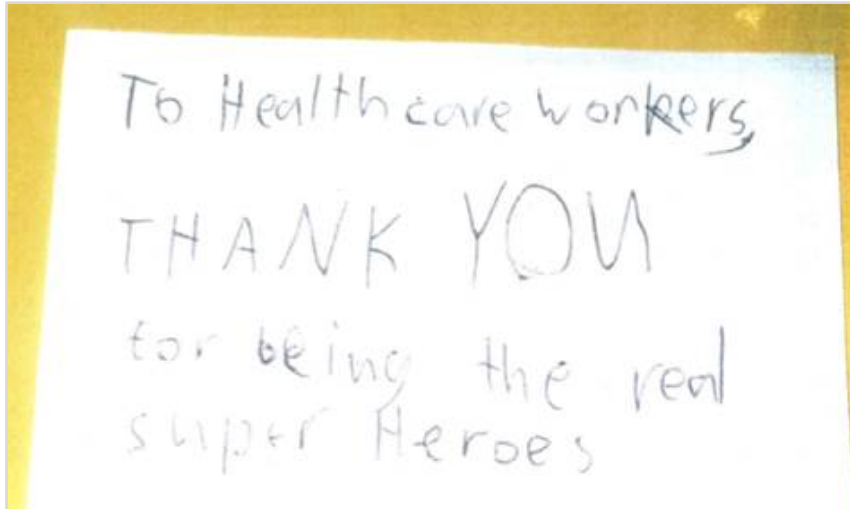 To Healthcare workers,
THANK YOU
for being the real
super Heroes